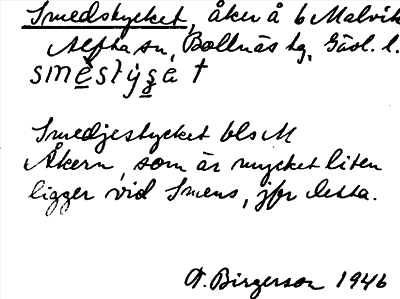 Smedstycket, åker å 6 Malvik
Alfta sn, Bollnäs tg, Gävl. l.
smestysat
Smedjestycket bls M
Åkern, som är mycket liten
ligger vid Smens, jfr detta.
A. Birgerson 1946